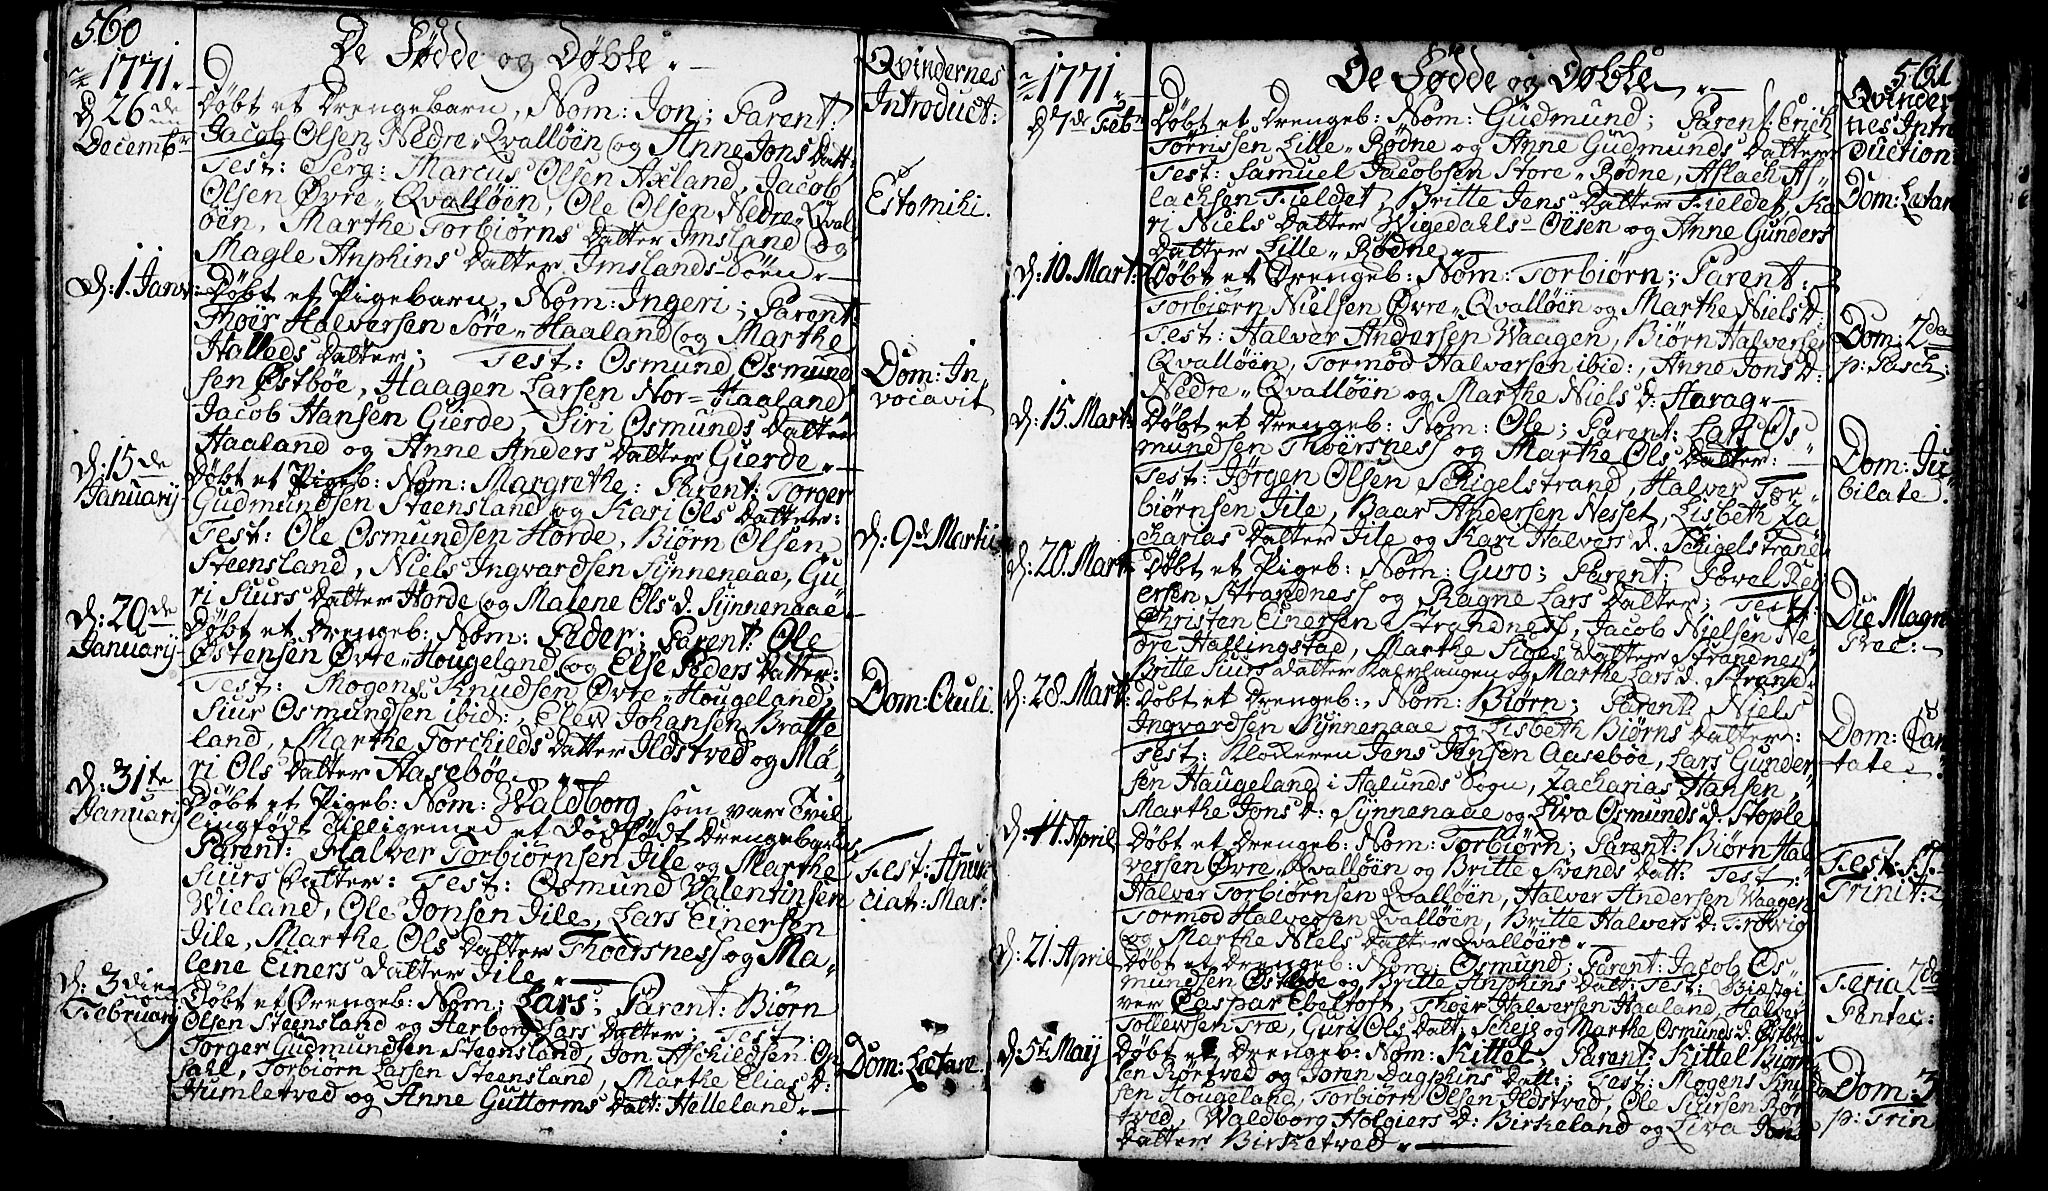 560
1771.
De Födde og Döbte.
Qvindernes
Introduct:
d 26de
Decembr
Döbt et Drengebarn, Nom: Jon; Parent:
Jacob Olsen Nedre-Qvallöen og Anne Jons Datt:
Test: Serg: Marcus Olsen Axland, Jacob
Olsen Övre-Qvallöen, Ole Olsen Nedre-Qval
öen, Marthe Torbiörns Datter Imsland og
Magle Anphins Datter Imslands-Söen.
Estomihi.
d: 1. Janv:
Döbt et Pigebarn, Nom: Ingeri; Parent:
Thoer Halversen Söre-Haaland og Marthe
Halleds Datter; Test: Osmund Osmund
sen Östböe, Haagen Larsen Nor-Haaland
Jacob Hansen Gierde, Siri Osmunds Datter
Haaland og Anne Anders Datter Gierde.
Dom: In
vocavit
d: 15de
Januarij
Döbt et Pigeb: Nom: Margrethe: Parent: Torger
Gudmundsen Steensland og Kari Ols Datter:
Test: Ole Osmundsen Horde, Biörn Olsen
Steensland, Niels Ingvardsen Synnenaae, Gu
ri Siurs Datter Horde og Malene Ols d. Synnenaae.
d: 9de Martii
d: 20de
Januarij
Döbt et Drengeb: Nom: Peder; Parent: Ole
Östensen Övre-Hougeland og Else Peders Datter:
Test: Mogens Knudsen Övre-Hougeland,
Siur Osmundsen ibid:, Elew Johansen Bratte
land, Marthe Torchilds Datter Ildstved og Ma
ri Ols Datter Aaseböe.
Dom: Oculi.
d: 31te
Januarij
Döbt et Pigeb: Nom: Waldborg, som var Tvil
lingfödt tilligemed et Dödfödt Drengebarn,
Parent: Halver Torbiörnsen Jile og Marthe
Siurs Datter: Test: Osmund Valentinsen
Wieland, Ole Jonsen Jile, Lars Einersen
Jile, Marthe Ols Datter Thoersness og Ma
lene Einers Datter Jile.
Fest: Anun
ciat: Mar:
d: 3die
February
Döbt et Drengeb: Nom: Lars; Parent: Biörn
Olsen Steensland og Herborg Lars Datter; Test:
Torger Gudmundsen Steensland, Jon Aschildsen On
sahl, Torbiörn Larsen Steensland, Marthe Elias D:
Humletved og Anne Guttorms Datt: Helleland.
Dom: Lætare
561
1771.
De Födde og Döbte.
Qvinder
nes Intro
duction
d 7de Febr
Döbt et Drengeb: Nom: Gudmund; Parent: Erich
Törrissen Lille-Rödne og Anne Gudmunds Datter
Test: Samuel Jacobsen Store-Rödne, Aslach As
lachsen Fieldet, Britte Jens Datter Fieldet, Ka
ri Niels Datter Wigedahls-Öisen og Anne Gunders
Datter Lille-Rödne.
Dom: Lætare
d: 10. Mart:
Döbt et Drengeb: Nom: Torbiörn; Parent:
Torbiörn Nielsen Övre-Qvallöen og Marthe Niels D:
Test: Halver Andersen Waagen, Biörn Halversen
Qvallöen, Tormod Halversen ibid:, Anne Jons D:
Nedre-Qvallöen og Marthe Niels d: Harag.
Dom: 2da
p: Pasch:
d: 15. Mart:
Döbt et Drengeb: Nom: Ole; Parent: Lars Os
mundsen Thoersness og Marthe Ols Datter:
Test: Jörgen Olsen Schigelstrand, Halver Tor
biörnsen Jile, Baar Andersen Nesset, Lisbeth Za
charias Datter Jile og Kari Halvers d. Schigelstrand.
Dom: Ju
bilate.
d: 20. Mart:
Döbt et Pigeb: Nom: Guro; Parent: Povel Rei
ersen Strandness og Ragne Lars Datter; Test:
Christen Einersen Strandness, Jacob Nielsen Ne
dre Hallingstad, Marthe Siges Datter Strandness,
Britte Siurs Datter Kalvhaugen og Marthe Lars d. Strand.
Die Magn
Prec:
d: 28. Mart:
Döbt et Drengeb:, Nom: Biörn; Parent: Niels
Ingvardsen Synnenaae og Lisbeth Biörns Datter:
Test: Klockeren Jens Jensen Aaseböe, Lars Gunder
sen Haugeland i Aalunds Sogn, Zacharias Hansen,
Marthe Jons D: Synnenaae og Liva Osmunds d. Stople.
Dom: Can
tate.
d: 14. April
Döbt et Drengeb: Nom: Torbiörn; Parent: Biörn Hal
versen Övre-Qvallöen og Britte Svends Datt: Test:
Halver Torbiörnsen Qvallöen, Halver Andersen Waagen
Tormod Halversen Qvallöen, Britte Halvers D: Frövig
og Marthe Niels Datter Qvallöen.
Fest: S:
Trinit:
d: 21. April
Döbt et Drengeb: Nom: Osmund; Parent: Jacob Os
mundsen Östböe og Britte Anphins Datt: Test:
ver Caspar Ebeltoft, Thoer Halversen Haaland, Halver
Tollewsen Træ, Guri Ols Datt: Scheje og Marthe Osmunds D. Östböe.
Feria 2da
Pentec:
d: 5te Maij
Döbt et Drengeb: Nom: Kittel, Parent: Kittel Biörn
sen Börtved og Joren Dagphins Datt:; Test: Mogens Knud
sen Hougeland, Torbiörn Olsen Ildstved, Ole Siursen Bör
tved, Waldborg Holgiers D: Birkeland og Liva Jons
Datter Birketved.
Dom: 3
p: Trin